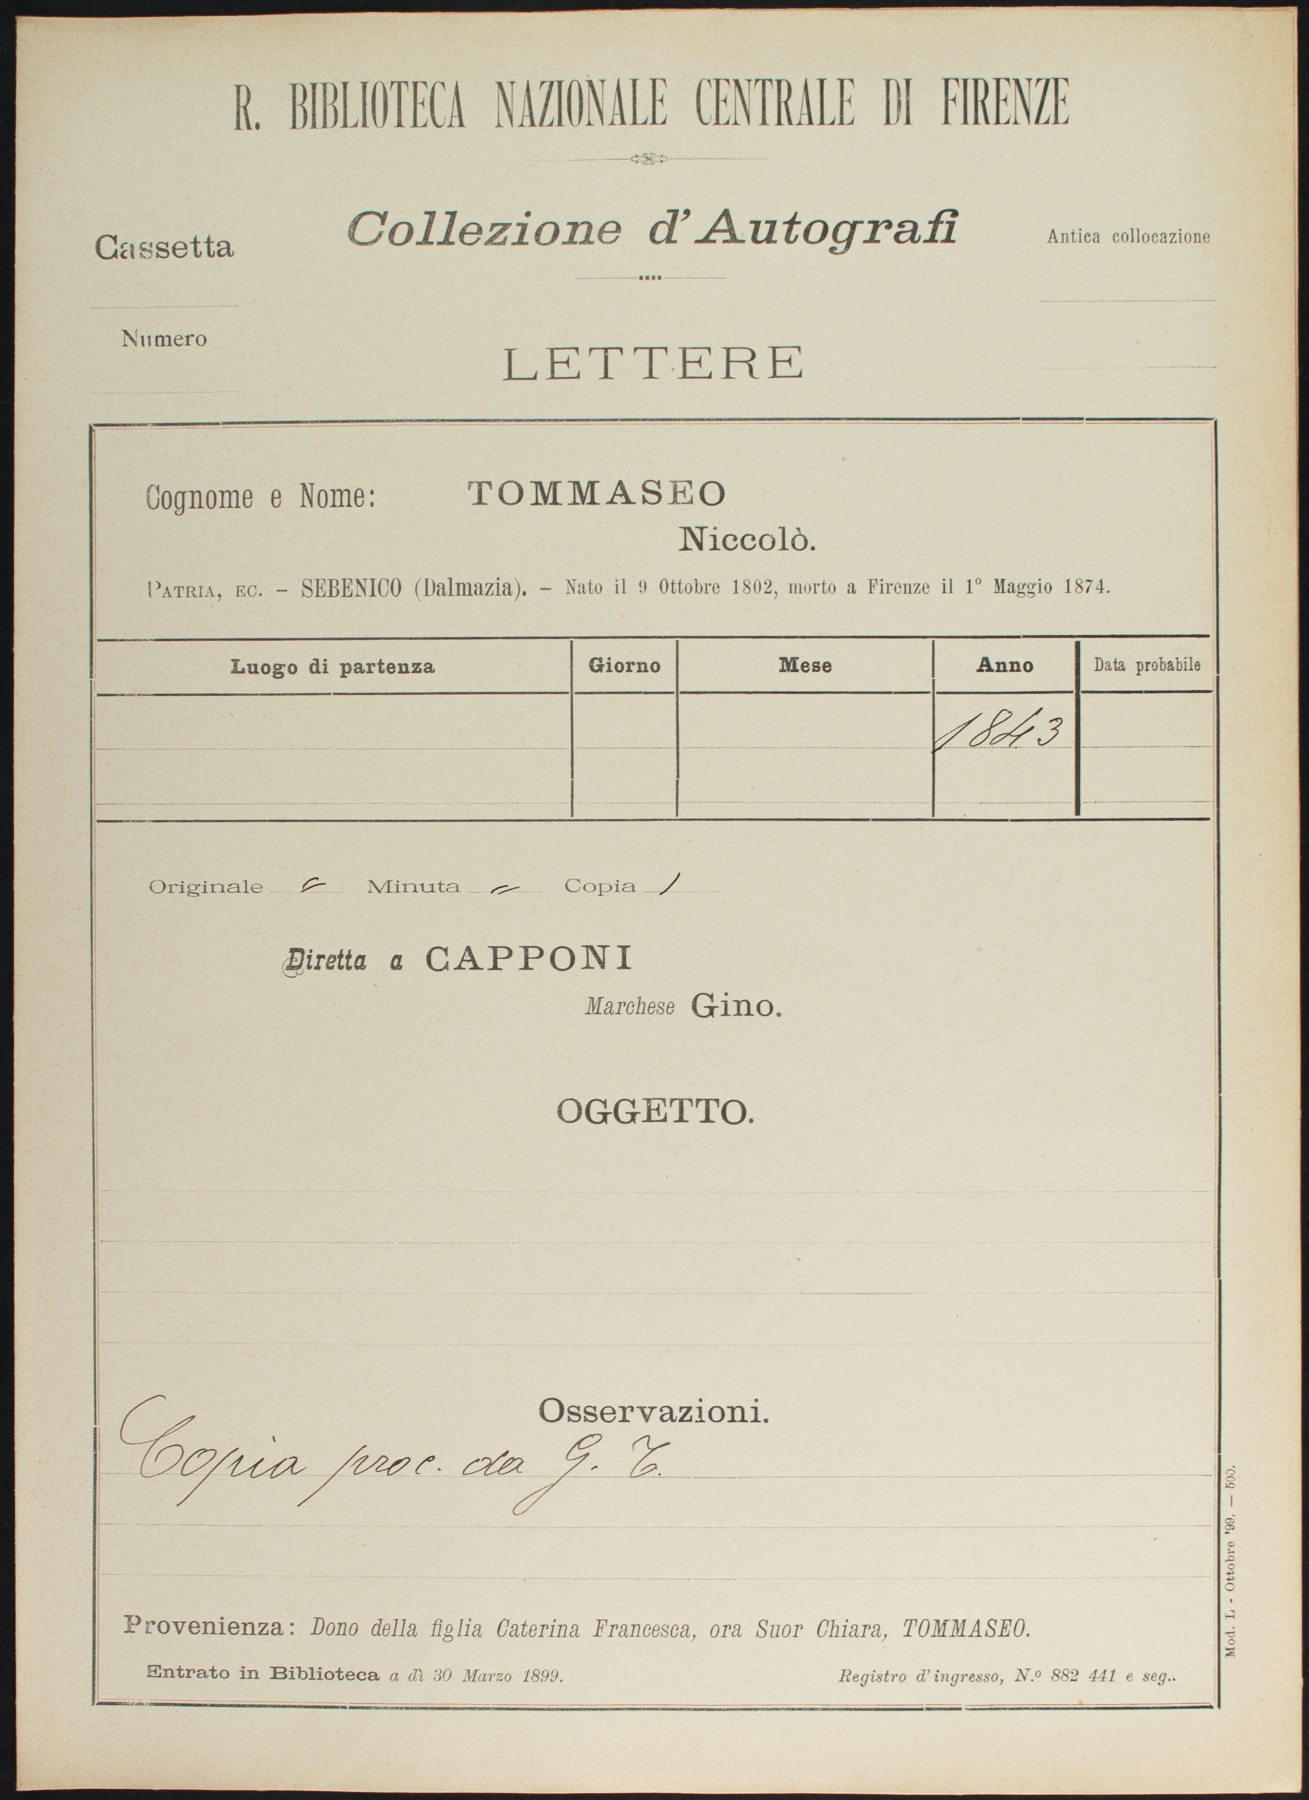 R. BIBLIOTECA NAZIONALE CENTRALE DI FIRENZE
Collezione d'Autografi
Cassetta
Antica collocazione
Numero
LETTERE
Cognome e Nome: TOMMASEO
Niccolò.
PATRIA, EC. – SEBENICO (Dalmazia). – Nato il 9 Ottobre 1802, morto a Firenze il 1° Maggio 1874.
Luogo di partenza Giorno Mese Anno Data probabile
1843
Originale " Minuta " Copia 1
Diretta a CAPPONI
Marchese Gino.
OGGETTO.
Osservazioni.
Copia proc. da G. T.
Provenienza: Dono della figlia Caterina Francesca, ora Suor Chiara, TOMMASEO.
Entrato in Biblioteca a dì 30 Marzo 1899. Registro d'ingresso, N.º 882 441 e seg..
Mod. L - Ottobre '99. — 500.